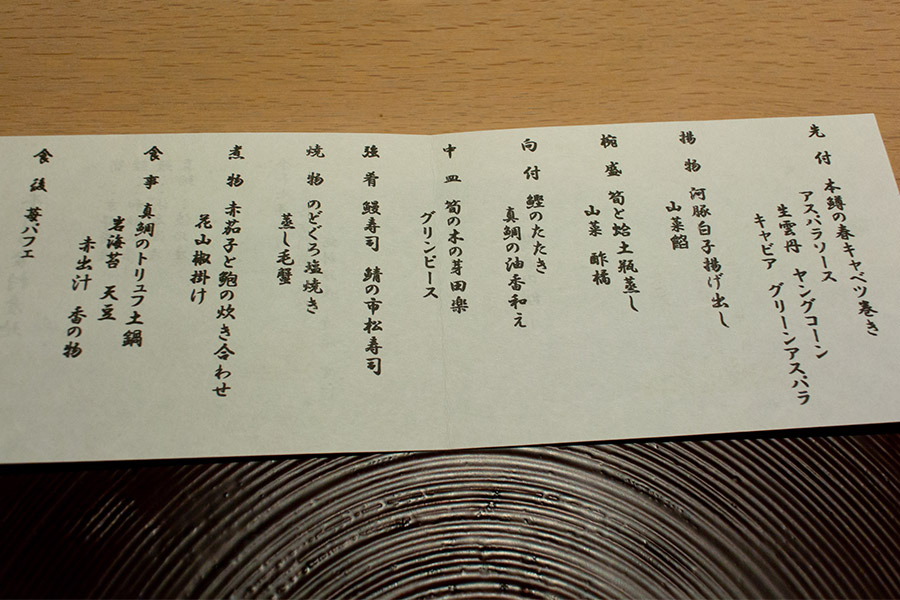 先付 本鱒の春キャベツ巻き
アスパラソース
生雲丹 ヤングコーン
キャビア グリーンアスパラ
揚物 河豚白子揚げ出し
山菜餡
椀盛 筍と蛤土瓶蒸し
山菜 酢橘
向付 鰹のたたき
真鯛の油香和え
中皿 筍の木の芽田楽
グリンピース
強肴 鰻寿司 鯖の市松寿司
焼物 のどぐろ塩焼き
蒸し毛蟹
煮物 赤茄子と鮑の炊き合わせ
花山椒掛け
食事 真鯛のトリュフ土鍋
岩海苔 天豆
赤出汁 香の物
食後 苺パフェ